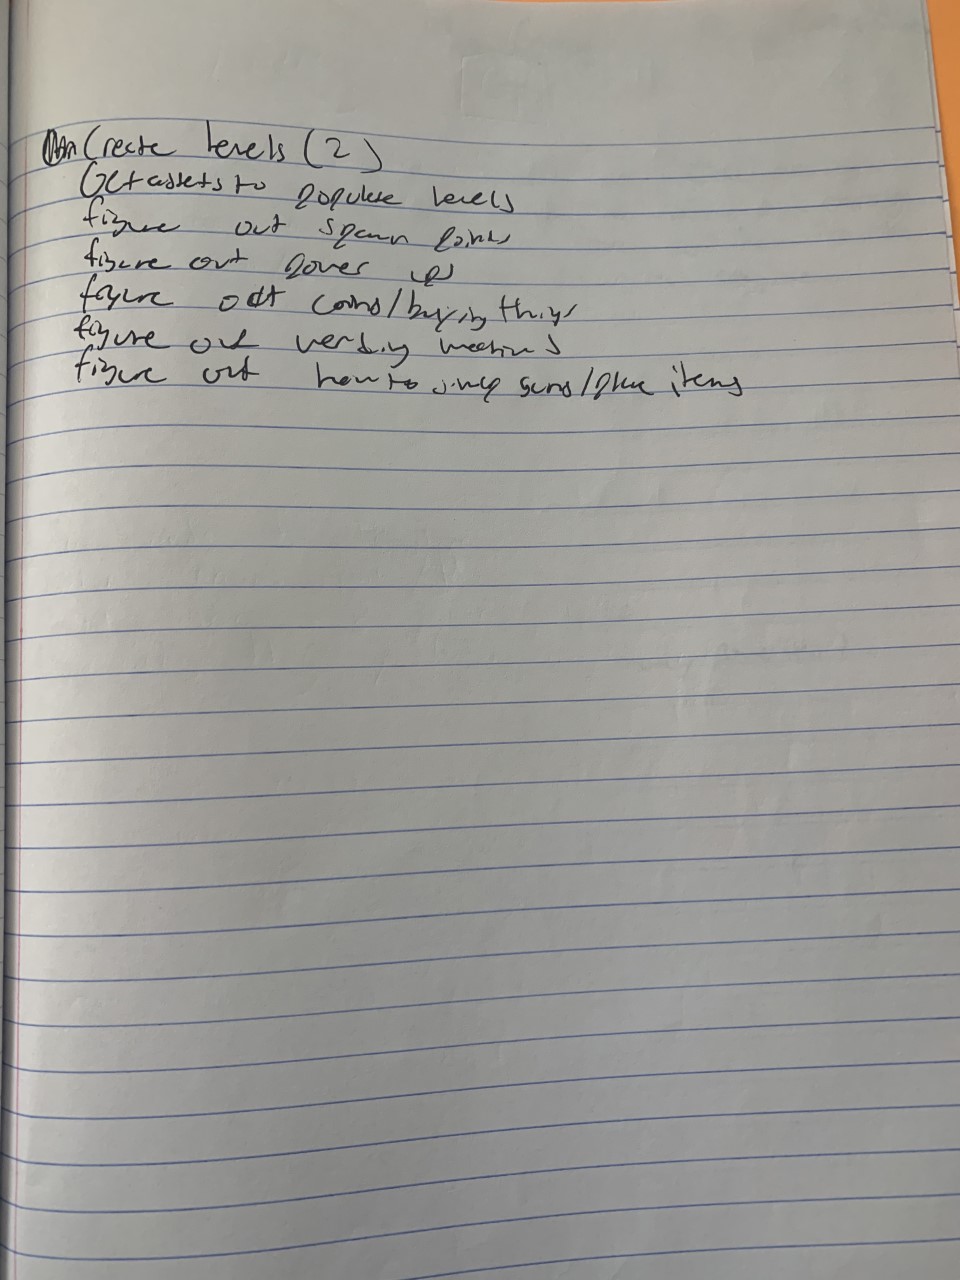 Create levels (2)
Get assets to populate levels
figure out spawn points
figure out power ups
figure out coins/buying things
figure out vending machines
figure out how to guns/place items